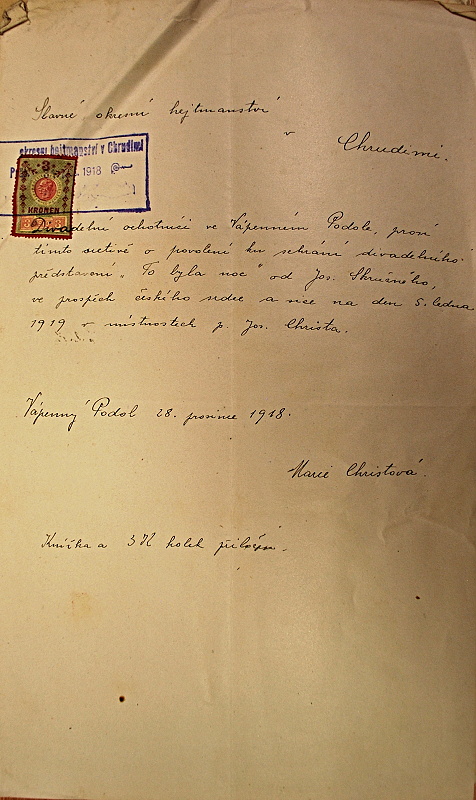 Slavné okresní hejtmanství
v
Chrudimi.
okresní hejtmanství v Chrudimi
1918
3
KRONEN
Divadelní ochotníci ve Vápenném Podole, prosí
tímto uctivě o povolení ku sehrání divadelního
představení „To byla noc" od Jos. Skružného,
ve prospěch českého srdce a sice na den 5. ledna
1919 v místnostech p. Jos. Christa.
Vápenný Podol 28. prosince 1918.
Marie Christová.
Knížka a 3 K kolek přiložen.